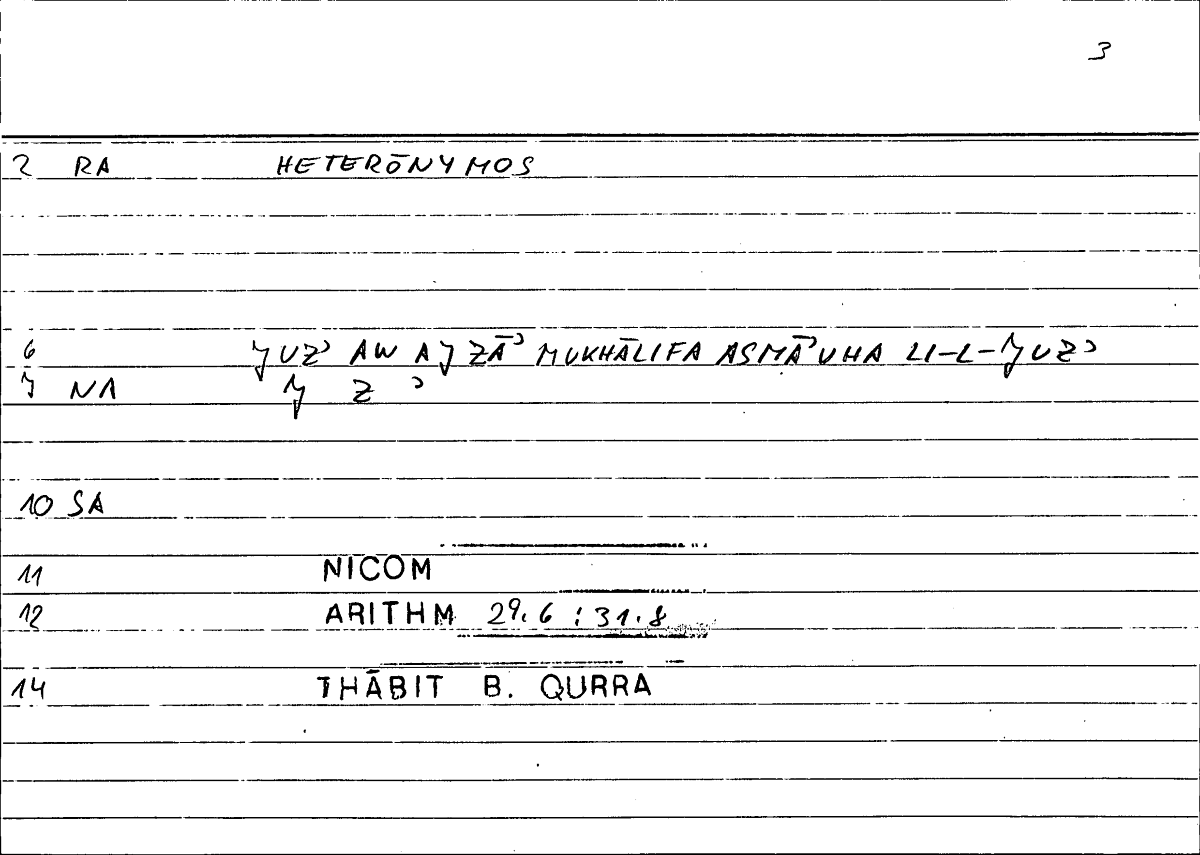 3
2 RA HETERŌNYMOS
6 ǦUZʾ AW AǦZĀʾ MUKHĀLIFA ASMĀʾUHA LI-L-ǦUZʾ
7 NA Ǧ Z ʾ
10 SA
11 NICOM
12 ARITHM 29.6 : 31.8
14 THĀBIT B. QURRA